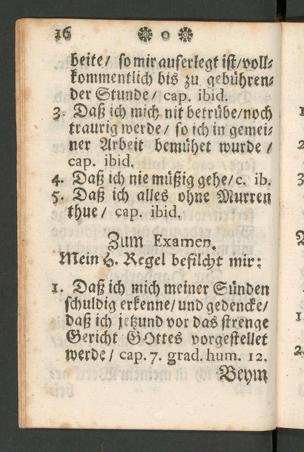 16 ❁ o ❁
beite/ so mir auferlegt ist/voll⸗
kommentlich bis zu gebühren⸗
der Stunde/ cap. ibid.
3. Daß ich mich nit betrübe/noch
traurig werde/ so ich in gemei⸗
ner Arbeit bemühet wurde/
cap. ibid.
4. Daß ich nie müßig gehe/c. ib.
5. Daß ich alles ohne Murren
thue/ cap. ibid.
Zum Examen.
Mein H. Regel befilcht mir:
1. Daß ich mich meiner Sünden
schuldig erkenne/und gedencke/
daß ich jetzund vor das strenge
Gericht GOttes vorgestellet
werde/ cap. 7. grad. hum. 12.
Beym